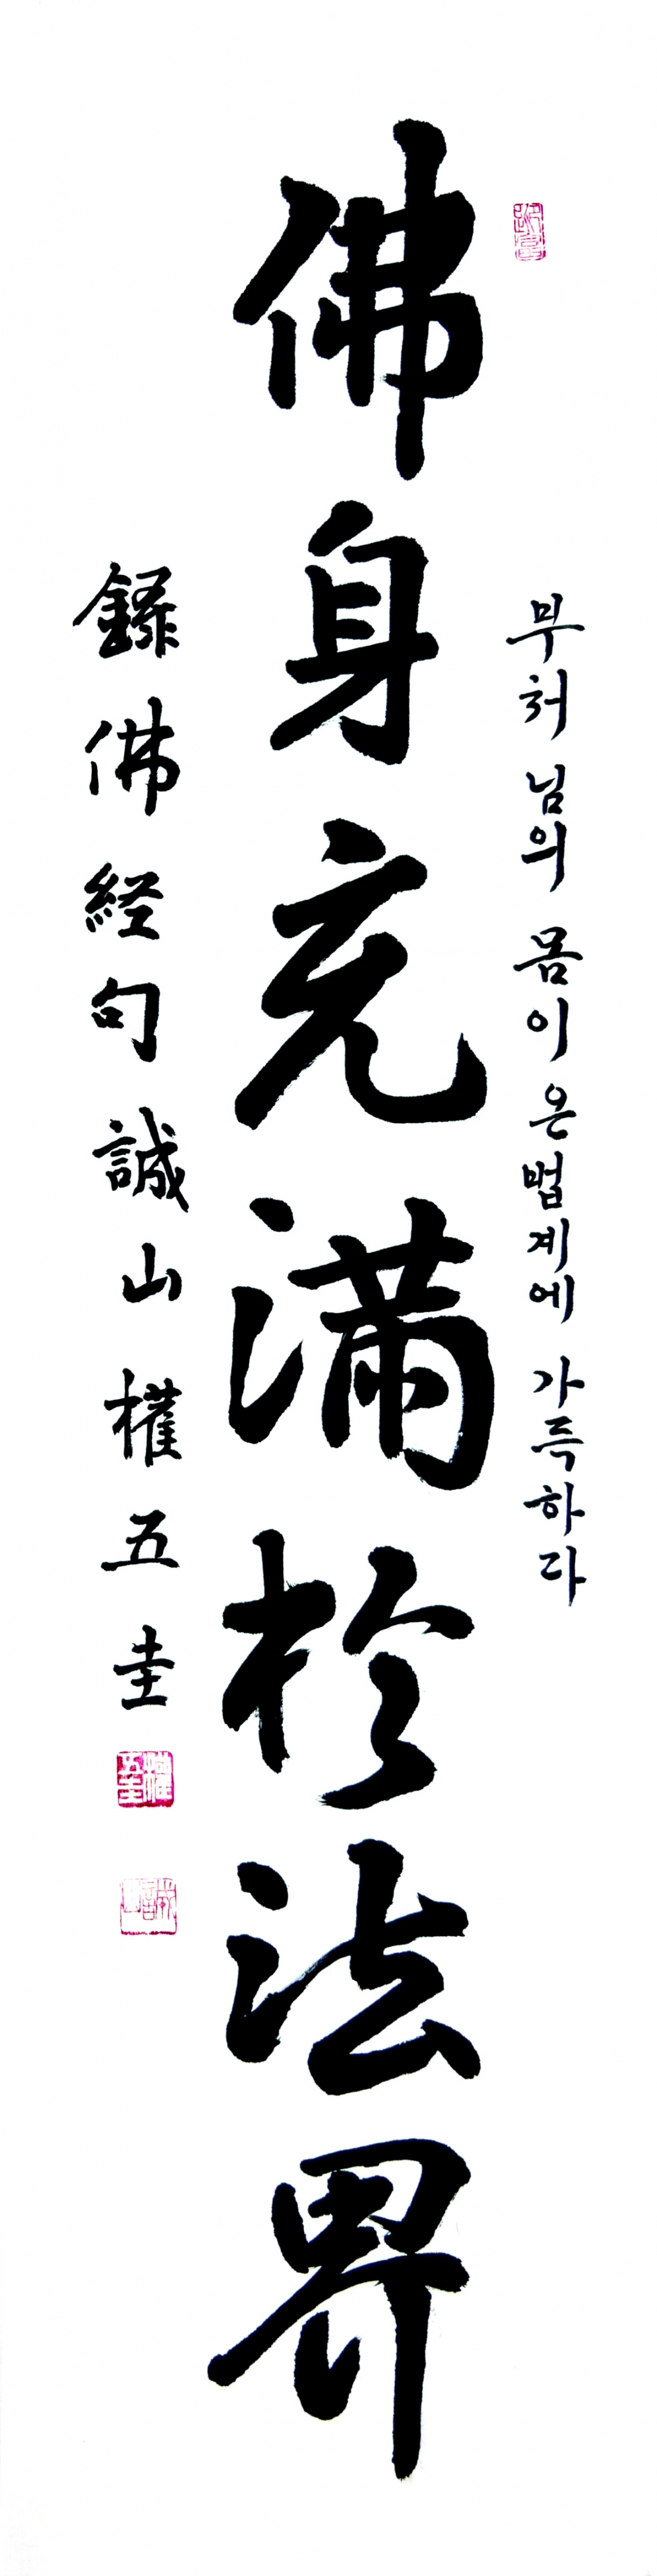 부처님의 몸이 온법계에 가득하다
佛身充滿於法界
錄佛経句 誠山 權五圭
權五圭
誠山